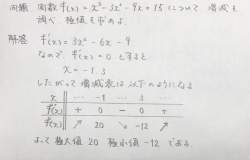 問題 関数 f(x)=x³-3x²-9x+15 について 増減を
調べ 極値を求めよ
解答 f'(x)=3x²-6x-9
なので、f'(x)=0 とすると
x=-1, 3
したがって 増減表は以下のようになる
x … -1 … 3 …
f'(x) + 0 - 0 +
f(x) ↗ 20 ↘ -12 ↗
よって 極大値 20 極小値 -12 である